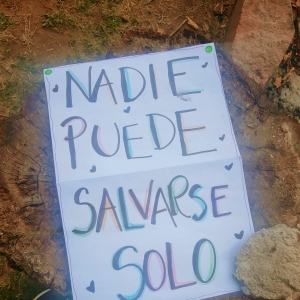 NADIE
PUEDE
SALVARSE
SOLO